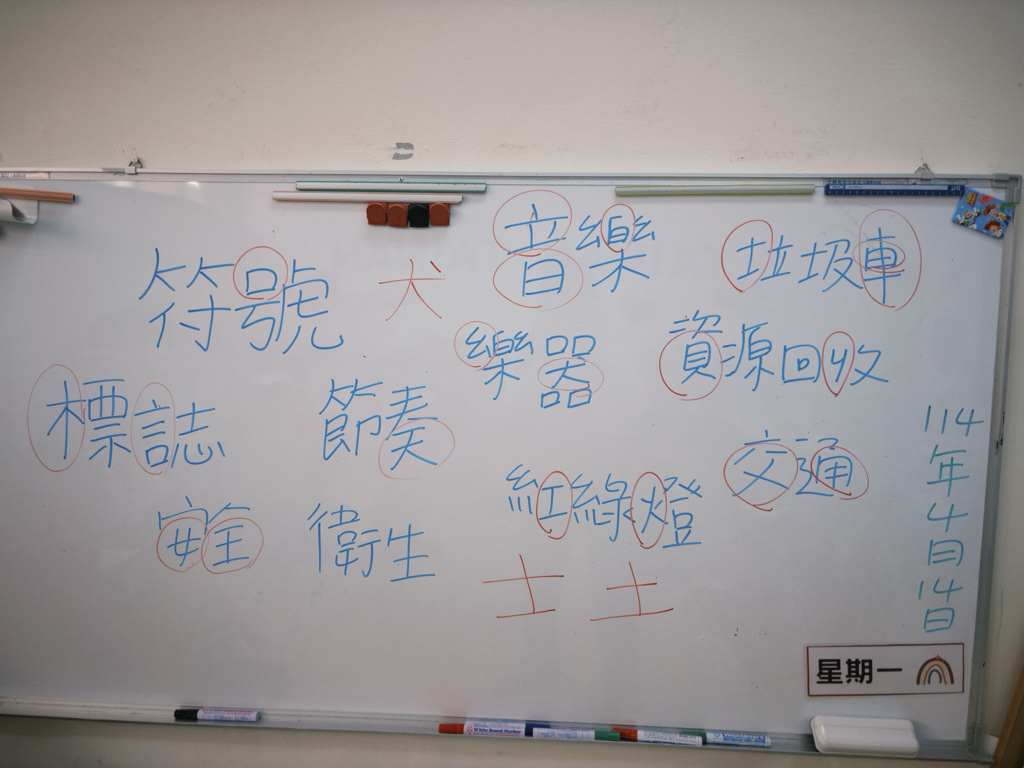 符號
犬
音樂
垃圾車
樂器
資源回收
標誌
節奏
交通
紅綠燈
安全
衛生
士 土
114
年
4
月
14
日
星期一
White Board Marker